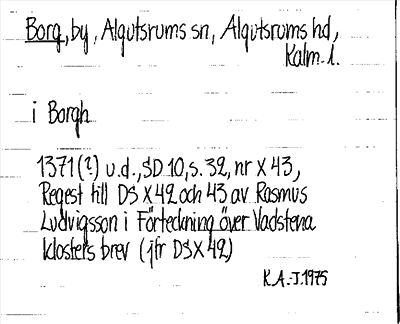 Borg, by, Algutsrums sn, Algutsrums hd,
Kalm. l.
i Borgh
1371 (?) u.d., SD 10, s. 32, nr X 43,
Regest till DS X 42 och 43 av Rasmus
Ludvigsson i Förteckning över Vadstena
klosters brev (jfr DS X 42)
K.A.-J. 1975